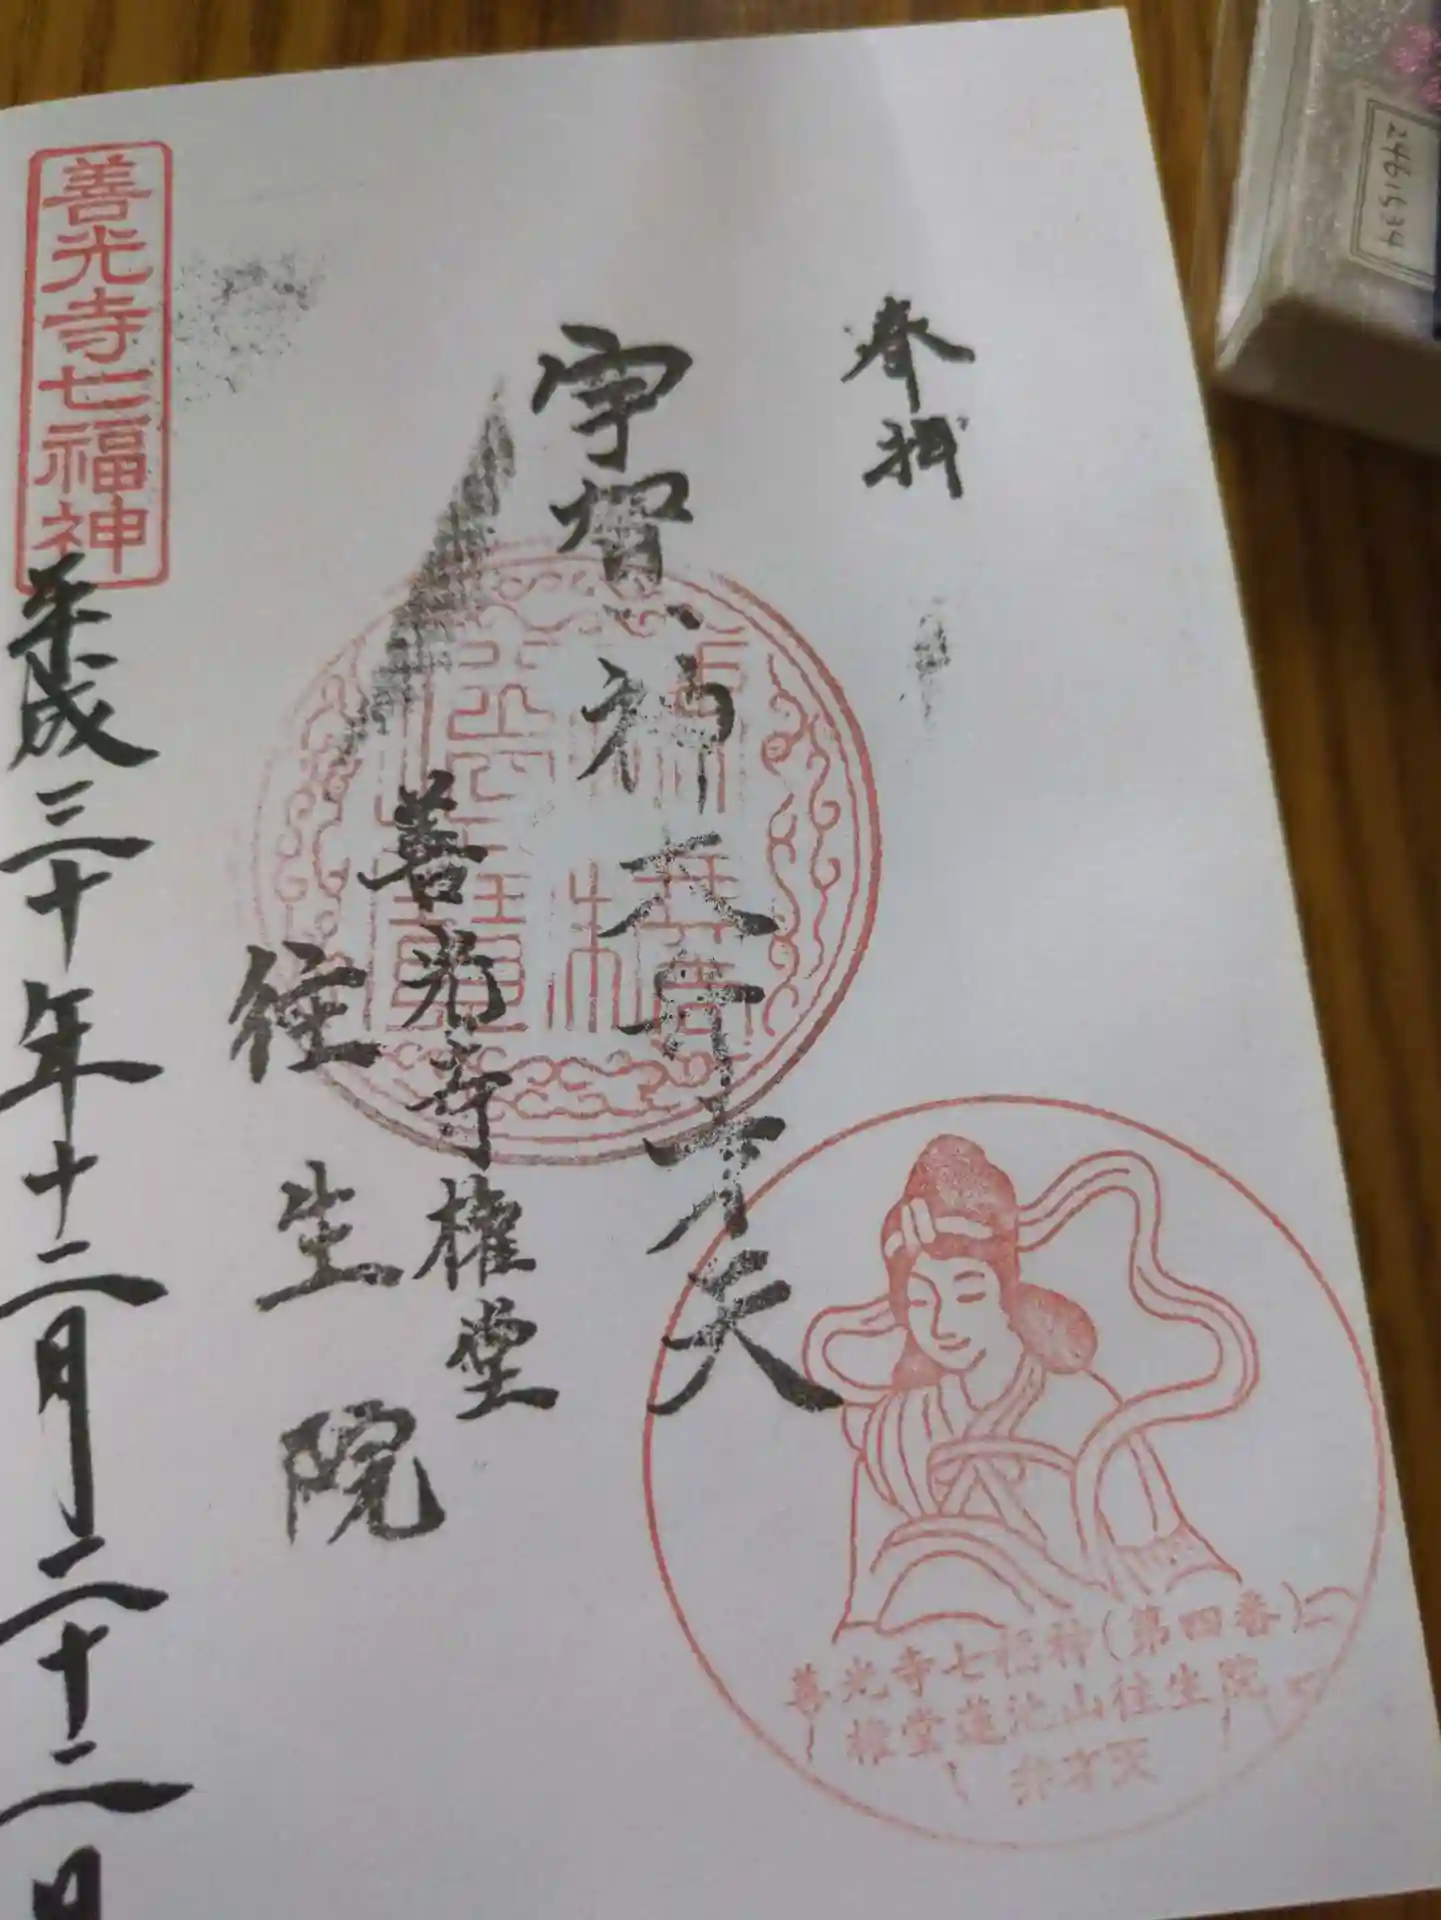 奉拝
宇賀神大弁才天
善光寺権堂
往生院
善光寺七福神
平成三十年十二月二十二日
善光寺七福神(第四番)
権堂蓮池山往生院
弁才天
2461534